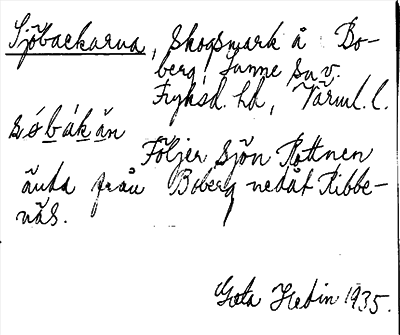 Sjöbackarna, skogsmark å Bo-
berg, Sunne sn. v.
Fryksd. hd, Värml. l.
sǿbákän
Följer sjön Rottnen
ända från Boberg nedåt Ribbe-
näs.
Gota Hedin 1935.